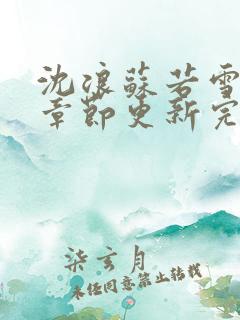 沈浪蘇若雪
章節更新完
柒玄月
未经同意禁止转载